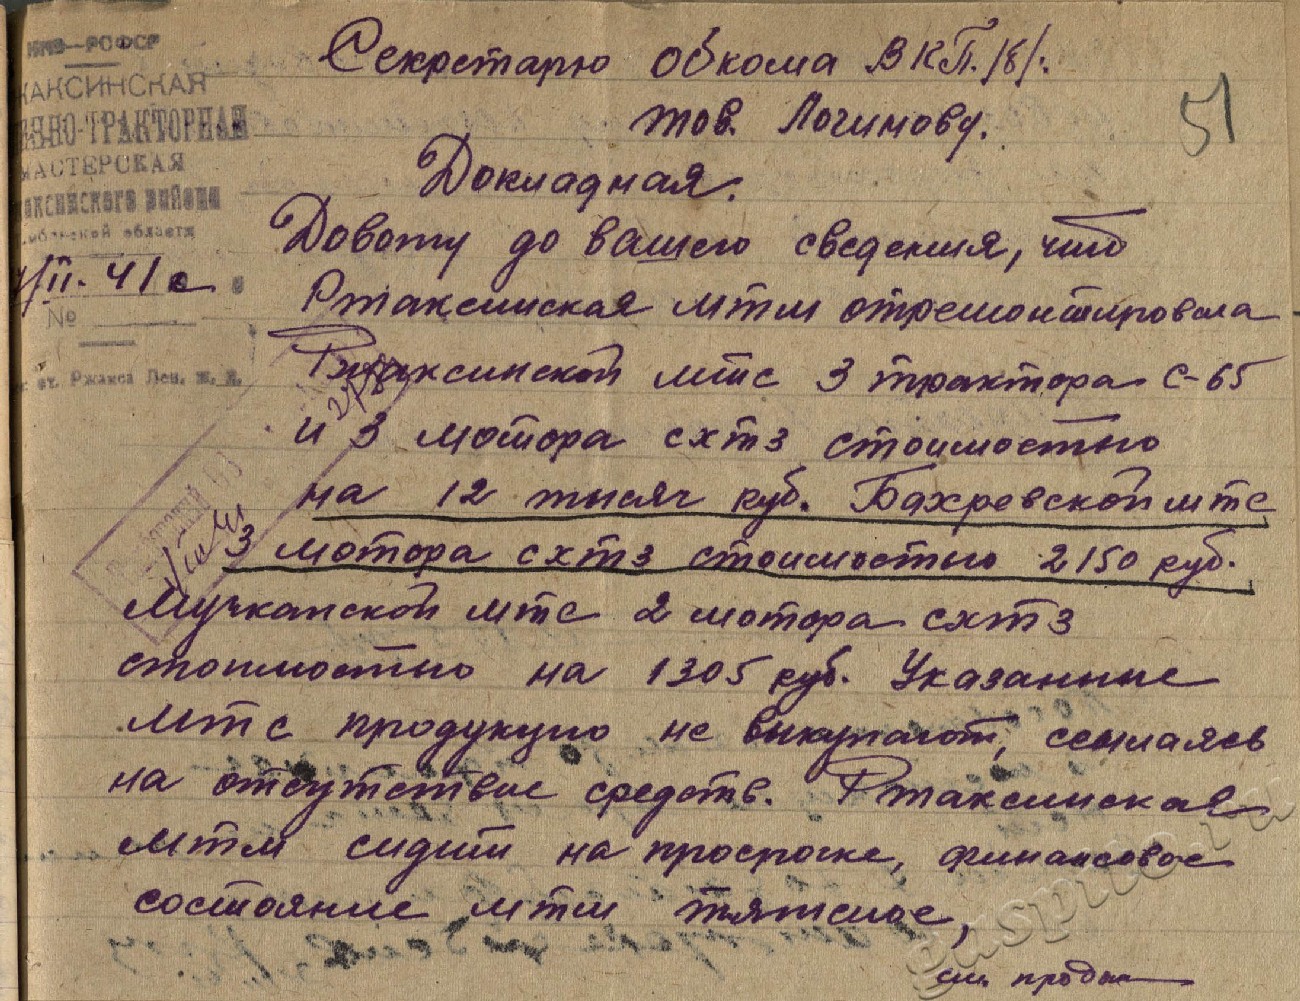 НКЗ-РСФСР
ЖАКСИНСКАЯ
ННО-ТРАКТОРНАЯ
МАСТЕРСКАЯ
аксинского района
области
II. 41 г.
№
ст. Ржакса Лен. ж. д.
51
Секретарю обкома ВКП./б/.
тов. Логинову.
Докладная.
Довожу до вашего сведения, что
Ржаксинская мтм отремонтировала
Ржаксинской мтс 3 трактора С-65
и 3 мотора схтз стоимостью
на 12 тысяч руб. Бахревской мтс
3 мотора схтз стоимостью 2150 руб.
Мучкапской мтс 2 мотора схтз
стоимостью на 1305 руб. Указанные
мтс продукцию не выкупают, ссылаясь
на отсутствие средств. Ржаксинская
мтм сидит на просрочке, финансовое
состояние мтм тяжелое,
см. продол
gaspito.ru